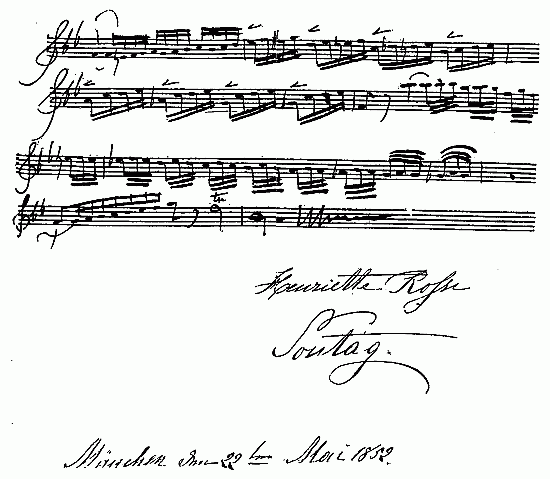 tr
Henriette Rossi
Sontag.
München den 22ten Mai 1852.